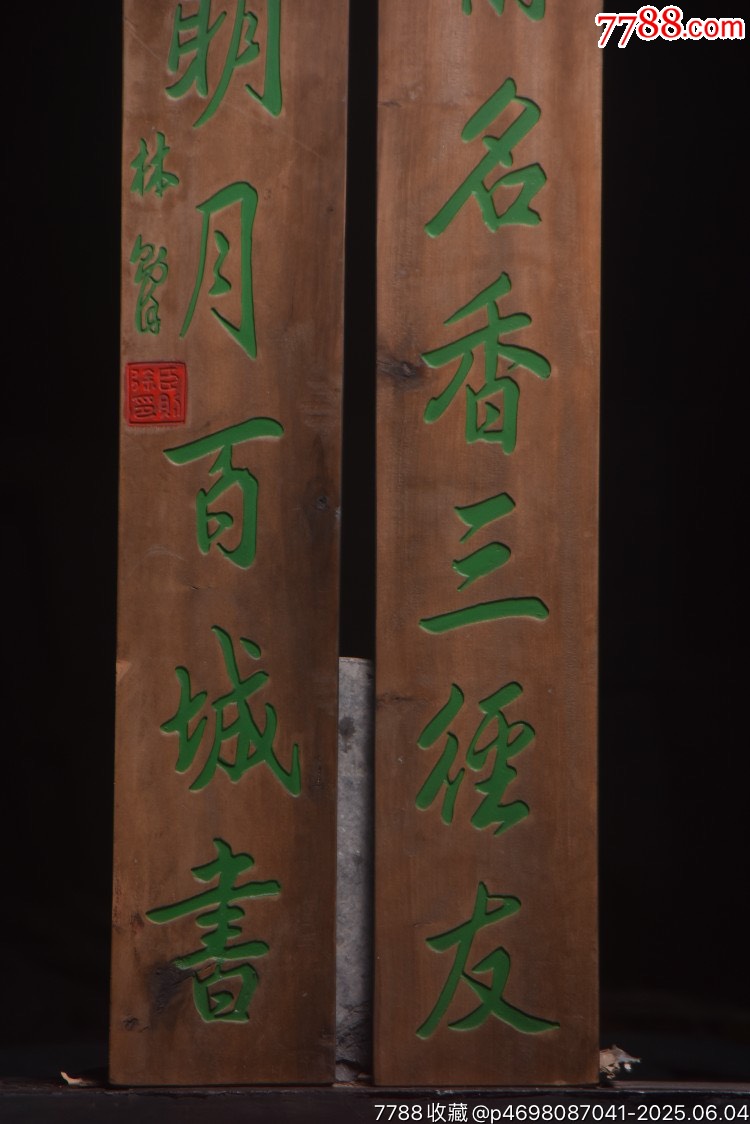 7788.com
名香三徑友
明月百城書
林則徐
臣則徐印
7788收藏@p4698087041-2025.06.04